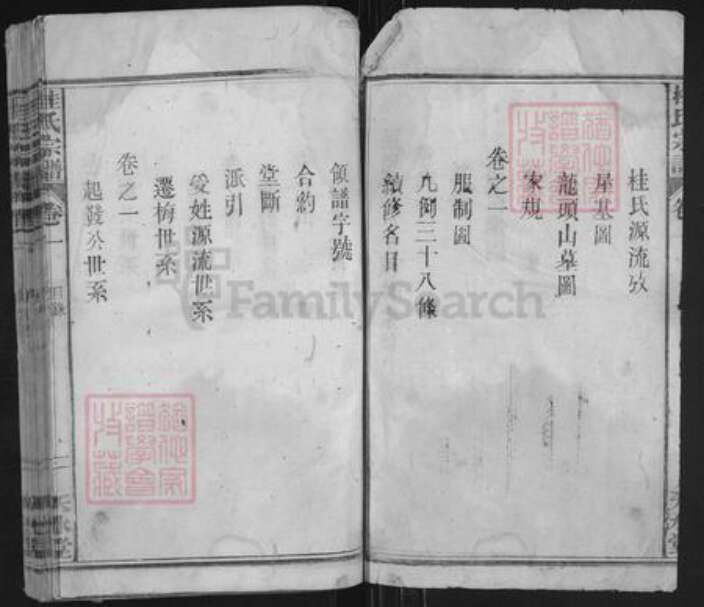 桂氏源流攷
屋基圖
龍頭山墓圖
家規
卷之一
服制圖
凡例三十八條
續修名目
領譜字號
合約
堂斷
派引
受姓源流世系
遷梅世系
卷之一
起發公世系
桂氏宗譜
卷一
FamilySearch